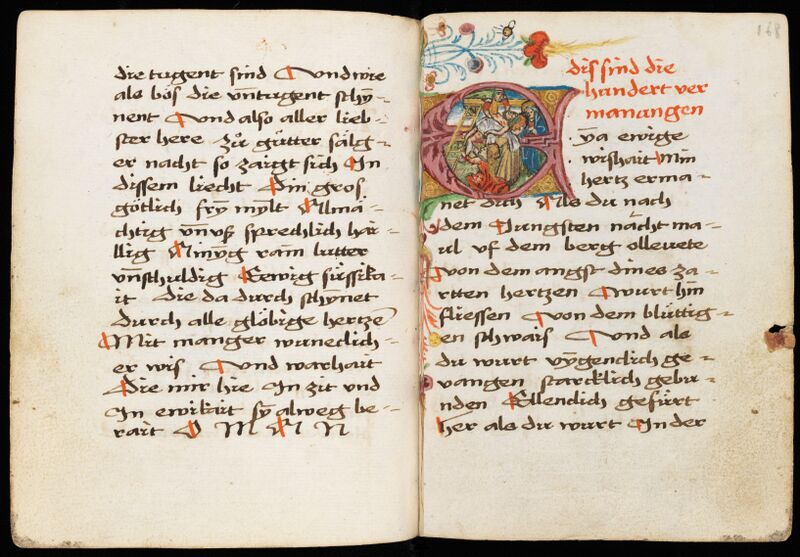 die tugent sind Vnd wie
als bös die vntugent schy¬
nent Vnd also aller lieb¬
ster here zů gůtter sälg¬
er nacht so zaigt sich In
dissem liecht Ain gros
götlich fry mylt Alma¬
chtig vnd sprechlich hai¬
llig Ainyg rain lutter
vnschuldig Eewig süssika¬
it die da durch schynet
durch alle glöbige hertzē
Mit manger wunedich¬
er wis Vnd warhait
Die mir hie In zit vnd
In ewikäit sy alweg be¬
rait A M E N
168
dis sind die
hundert ver
manungen
Eya ewige
wishait Min
hertz erma¬
net dich Als du nach
dem Jungsten nächt ma¬
ul vf dem berg olleuete
von dem angst dines za¬
rtten hertzen Wurt hin
fliessen Von dem blüttig¬
en schwais Vnd als
du wurt vygendlich ge¬
vangen starcklich gebu¬
nden Ellendich gefürt
her als du wurt In der